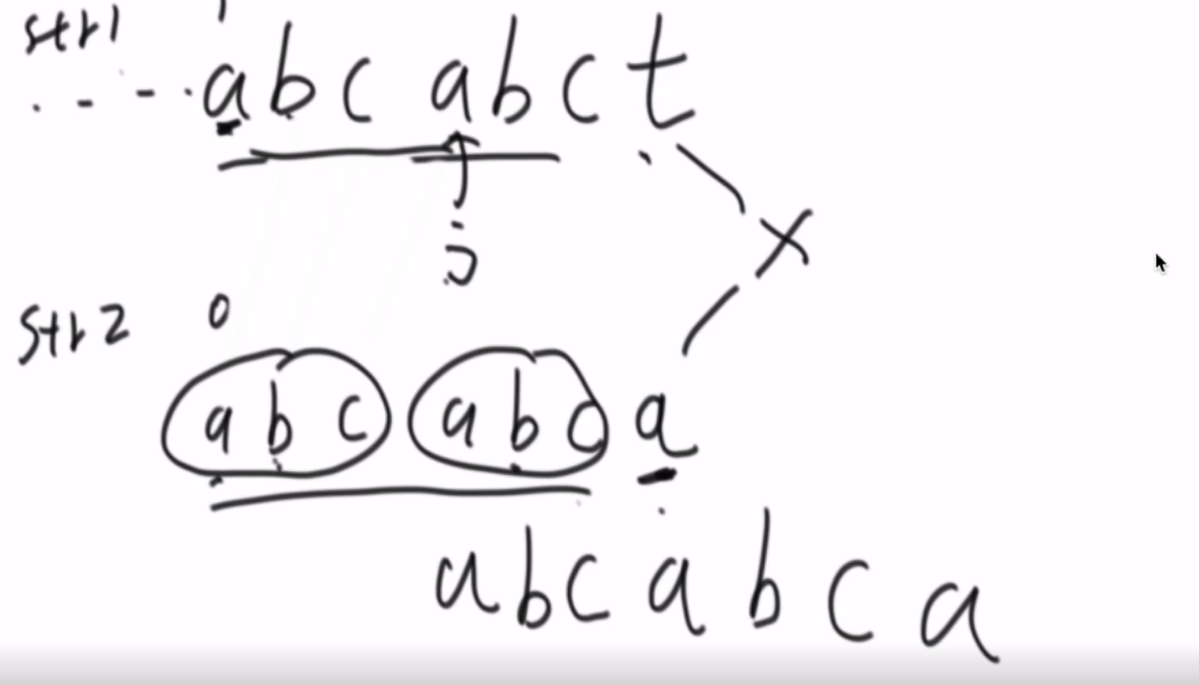 str1
....abc abct
j
str2 0
abc abc a
x
abcabca